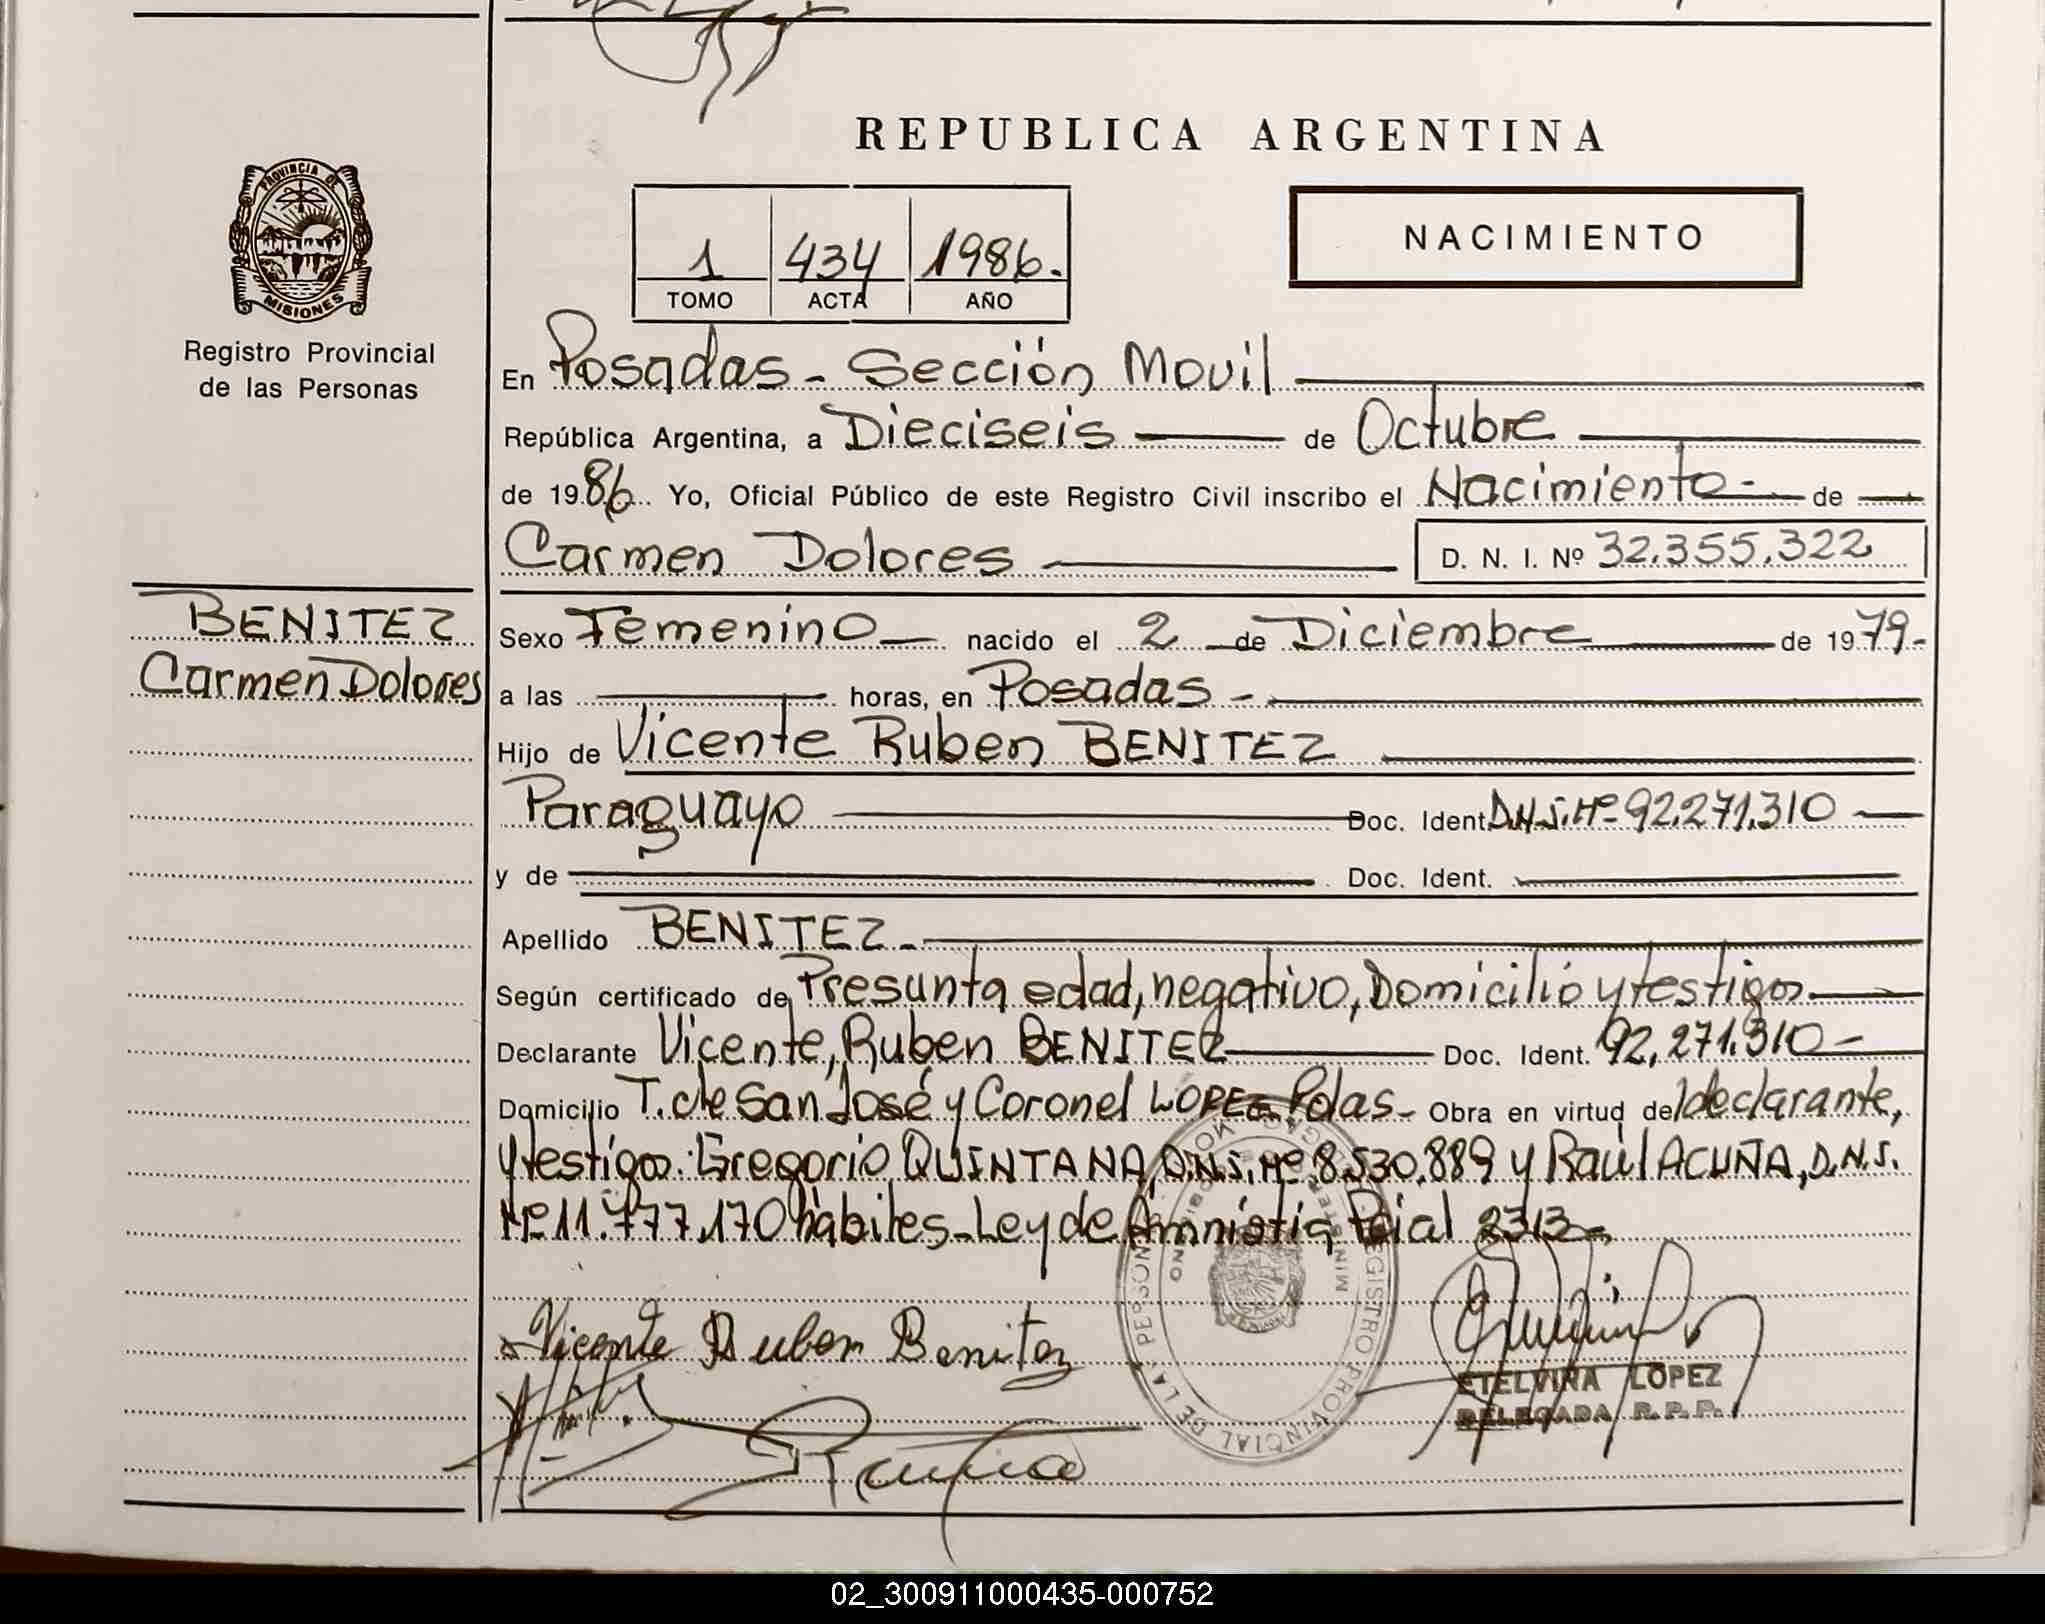 REPUBLICA ARGENTINA
PROVINCIA DE
MISIONES
Registro Provincial
de las Personas
1 434 1986.
TOMO ACTA AÑO
NACIMIENTO
En Posadas - Sección Movil
República Argentina, a Dieciseis de Octubre
de 1986 Yo, Oficial Público de este Registro Civil inscribo el Nacimiento - de
Carmen Dolores D. N. I. Nº 32.355.322
BENITEZ
Carmen Dolores
Sexo Femenino nacido el 2 de Diciembre de 1979 -
a las horas, en Posadas -
Hijo de Vicente Ruben BENITEZ
Paraguayo Doc. Ident. D.N.I. Nº 92.271.310
y de Doc. Ident.
Apellido BENITEZ -
Según certificado de Presunta edad, negativo, Domicilio y testigos
Declarante Vicente, Ruben BENITEZ Doc. Ident. 92.271.310 -
Domicilio T. de San José y Coronel LOPEZ Pdas - Obra en virtud del declarante,
y testigos: Gregorio QUINTANA, D.N.I. Nº 8.530.889 y Raúl ACUÑA, D.N.I.
Nº 11.777.170 hábiles - Ley de Amnistia Pcial 2313 -
Vicente Ruben Benitez
REGISTRO PROVINCIAL DE LAS PERSONAS
ETELVINA LOPEZ
DELEGADA R.P.P.
02_300911000435-000752